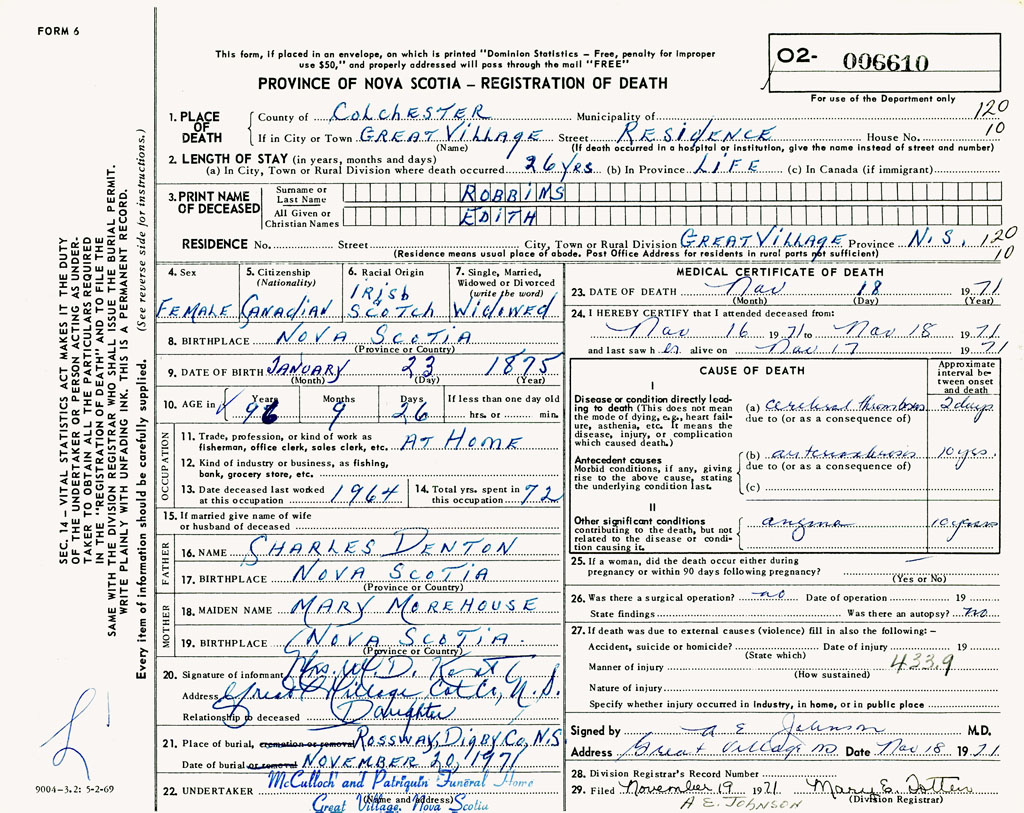 FORM 6
This form, if placed in an envelope, on which is printed "Dominion Statistics – Free, penalty for improper
use $50," and properly addressed will pass through the mail "FREE"
PROVINCE OF NOVA SCOTIA – REGISTRATION OF DEATH
O2- 006610
For use of the Department only
1. PLACE OF DEATH County of COLCHESTER Municipality of 120
If in City or Town GREAT VILLAGE Street RESIDENCE House No. 10
(Name) (If death occurred in a hospital or institution, give the name instead of street and number)
2. LENGTH OF STAY (in years, months and days)
(a) In City, Town or Rural Division where death occurred 26 YRS (b) In Province LIFE (c) In Canada (if immigrant)
3. PRINT NAME OF DECEASED
Surname or Last Name ROBBINS
All Given or Christian Names EDITH
RESIDENCE No. Street City, Town or Rural Division GREAT VILLAGE Province N.S. 120
(Residence means usual place of abode. Post Office Address for residents in rural parts not sufficient) 10
4. Sex FEMALE
5. Citizenship (Nationality) CANADIAN
6. Racial Origin IRISH SCOTCH
7. Single, Married, Widowed or Divorced (write the word) WIDOWED
8. BIRTHPLACE NOVA SCOTIA
(Province or Country)
9. DATE OF BIRTH JANUARY 23 1875
(Month) (Day) (Year)
10. AGE in Years 96 Months 9 Days 26 If less than one day old
hrs. or min.
OCCUPATION
11. Trade, profession, or kind of work as
fisherman, office clerk, sales clerk, etc. AT HOME
12. Kind of industry or business, as fishing,
bank, grocery store, etc.
13. Date deceased last worked at this occupation 1964
14. Total yrs. spent in this occupation 72
15. If married give name of wife
or husband of deceased
FATHER
16. NAME CHARLES DENTON
17. BIRTHPLACE NOVA SCOTIA
(Province or Country)
MOTHER
18. MAIDEN NAME MARY MOREHOUSE
19. BIRTHPLACE NOVA SCOTIA.
(Province or Country)
20. Signature of informant Mrs. W. D. Kent
Address Great Village Col Co, N.S.
Relationship to deceased Daughter
21. Place of burial, cremation or removal ROSSWAY, DIGBY CO, N.S
Date of burial or removal NOVEMBER 20, 1971
22. UNDERTAKER McCulloch and Patriquin Funeral Home
(Name and address)
Great Village, Nova Scotia
MEDICAL CERTIFICATE OF DEATH
23. DATE OF DEATH Nov 18 1971
(Month) (Day) (Year)
24. I HEREBY CERTIFY that I attended deceased from:
Nov 16 1971 to Nov 18 1971
and last saw her alive on Nov 17 1971
CAUSE OF DEATH
Approximate interval between onset and death
I
Disease or condition directly leading to death (This does not mean
the mode of dying, e.g., heart failure, asthenia, etc. It means the
disease, injury, or complication
which caused death.)
(a) cerebral thrombosis 2 days
due to (or as a consequence of)
Antecedent causes
Morbid conditions, if any, giving
rise to the above cause, stating
the underlying condition last.
(b) arteriosclerosis 10 yrs.
due to (or as a consequence of)
(c)
II
Other significant conditions
contributing to the death, but not
related to the disease or condition causing it.
angina 10 years
25. If a woman, did the death occur either during
pregnancy or within 90 days following pregnancy? –
(Yes or No)
26. Was there a surgical operation? no Date of operation 19
State findings Was there an autopsy? no
27. If death was due to external causes (violence) fill in also the following: –
Accident, suicide or homicide? Date of injury 19
(State which) 433.9
Manner of injury
(How sustained)
Nature of injury
Specify whether injury occurred in industry, in home, or in public place
Signed by A E Johnson M.D.
Address Great Village NS Date Nov 18 1971
28. Division Registrar's Record Number
29. Filed November 19 1971 Mary E. Totten
A E. JOHNSON (Division Registrar)
SEC. 14 – VITAL STATISTICS ACT MAKES IT THE DUTY
OF THE UNDERTAKER OR PERSON ACTING AS UNDERTAKER TO OBTAIN ALL THE PARTICULARS REQUIRED
IN THE "REGISTRATION OF DEATH" AND TO FILE THE
SAME WITH THE DIVISION REGISTRAR WHO SHALL ISSUE THE BURIAL PERMIT.
WRITE PLAINLY WITH UNFADING INK. THIS IS A PERMANENT RECORD.
Every item of information should be carefully supplied. (See reverse side for instructions.)
9004-3.2: 5-2-69